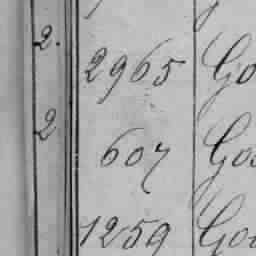 2. 2965 Go
2 607 Go
1259 Go